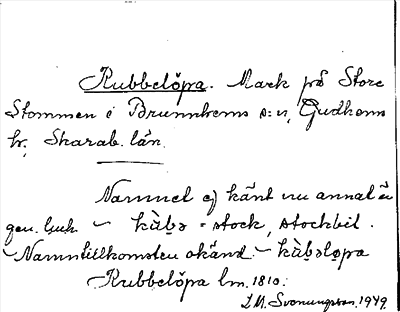 Kubbelöpa. Mark på Store
Stommen i Brunnhems s:n, Gudhems
hr, Skarab. län.
Namnet ej känt nu annat än
gen. ljuk. – kùbə = stock, stockbit.
– Namntillkomsten okänd. – kùbəlöpa
Kubbelöpa lm. 1810.
L M. Svanungsson. 1949.